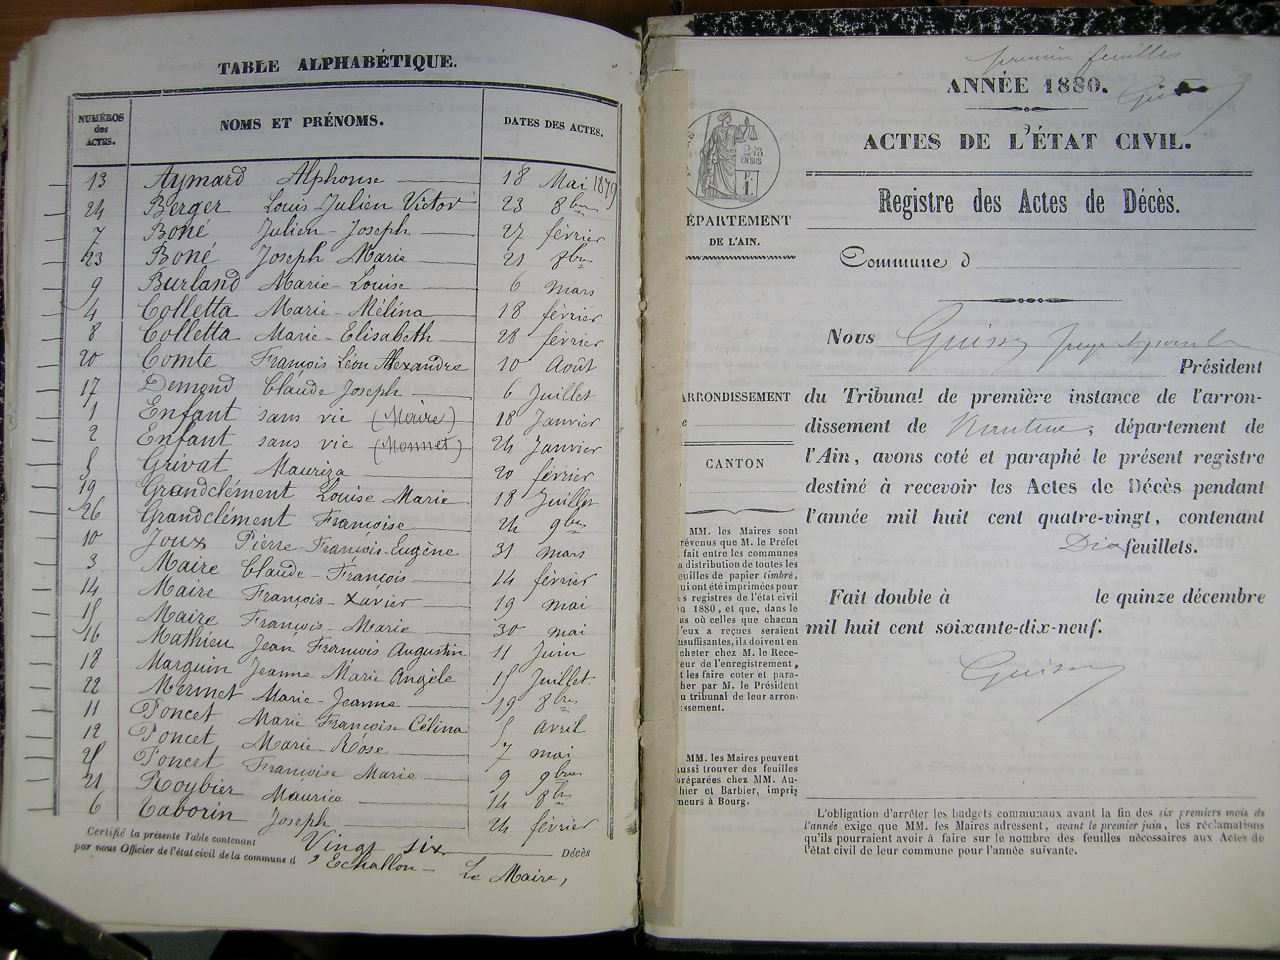 TABLE ALPHABÉTIQUE.
NUMÉROS des ACTES. NOMS ET PRÉNOMS. DATES DES ACTES.
13 Aymard Alphonse 18 Mai 1879
24 Berger Louis Julien Victor 23 8bre
7 Boné Julien-Joseph 27 février
23 Boné Joseph Marie 21 8bre
9 Burland Marie-Louise 6 mars
4 Colletta Marie-Mélina 18 février
8 Colletta Marie-Elisabeth 28 février
20 Comte François Léon Alexandre 10 Août
17 Demond Claude Joseph 6 Juillet
1 Enfant sans vie (Maire) 18 Janvier
2 Enfant sans vie (Monnet) 24 Janvier
5 Grivat Mauriza 20 février
19 Grandclément Louise Marie 18 Juillet
26 Grandclément Françoise 24 9bre
10 Joux Pierre-François-Eugène 31 mars
3 Maire Claude-François 14 février
14 Maire François-Xavier 19 mai
15 Maire François-Marie 30 mai
16 Mathieu Jean François Augustin 11 Juin
18 Marguin Jeanne Marie Angèle 15 Juillet
22 Mermet Marie-Jeanne 19 8bre
11 Poncet Marie Françoise Célina 5 avril
12 Poncet Marie-Rose 7 mai
25 Poncet Françoise Marie 9 9bre
21 Roybier Maurice 14 8bre
6 Taborin Joseph 24 février
Certifié la présente Table contenant Vingt six Décès
par nous Officier de l'état civil de la commune d'Echallon
Le Maire,
premier feuillet
ANNÉE 1880.
ACTES DE L'ÉTAT CIVIL.
Registre des Actes de Décès.
Commune d
ÉPARTEMENT
DE L'AIN.
ARRONDISSEMENT
CANTON
MM. les Maires sont
révenus que M. le Préfet
fait entre les communes
a distribution de toutes les
euilles de papier timbré,
ui ont été imprimées pour
s registres de l'état civil
1880, et que, dans le
as où celles que chacun
'eux a reçues seraient
nsuffisantes, ils doivent en
cheter chez M. le Rece-
eur de l'enregistrement,
t les faire coter et para-
her par M. le Président
u tribunal de leur arron-
issement.
MM. les Maires peuvent
ussi trouver des feuilles
réparées chez MM. Au-
hier et Barbier, impri-
meurs à Bourg.
Nous
Président
du Tribunal de première instance de l'arron-
dissement de Nantua, département de
l'Ain, avons coté et paraphé le présent registre
destiné à recevoir les Actes de Décès pendant
l'année mil huit cent quatre-vingt, contenant
Dix feuillets.
Fait double à le quinze décembre
mil huit cent soixante-dix-neuf.
L'obligation d'arrêter les budgets communaux avant la fin des six premiers mois de
l'année exige que MM. les Maires adressent, avant le premier juin, les réclamations
qu'ils pourraient avoir à faire sur le nombre des feuilles nécessaires aux Actes de
l'état civil de leur commune pour l'année suivante.